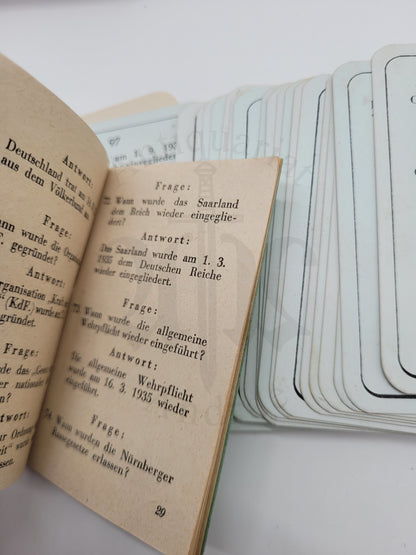 Antwort:
Deutschland trat am
aus dem Völkerbund
Frage:
Wann wurde die Organi-
gegründet?
Antwort:
ganisation „Kraft
(KdF) wurde am
gegründet.
Frage:
de das „Gesetz
r nationalen
en?
Antwort:
zur Ordnung
eit" wurde
assen.
Frage:
72. Wann wurde das Saarland
dem Reich wieder eingeglie-
dert?
Antwort:
Das Saarland wurde am 1. 3.
1935 dem Deutschen Reiche
wieder eingegliedert.
Frage:
73. Wann wurde die allgemeine
Wehrpflicht wieder eingeführt?
Antwort:
Die allgemeine Wehrpflicht
wurde am 16. 3. 1935 wieder
eingeführt.
Frage:
74. Wann wurden die Nürnberger
Rassegesetze erlassen?
29
97
am 1. 9. 193
eingegliedert